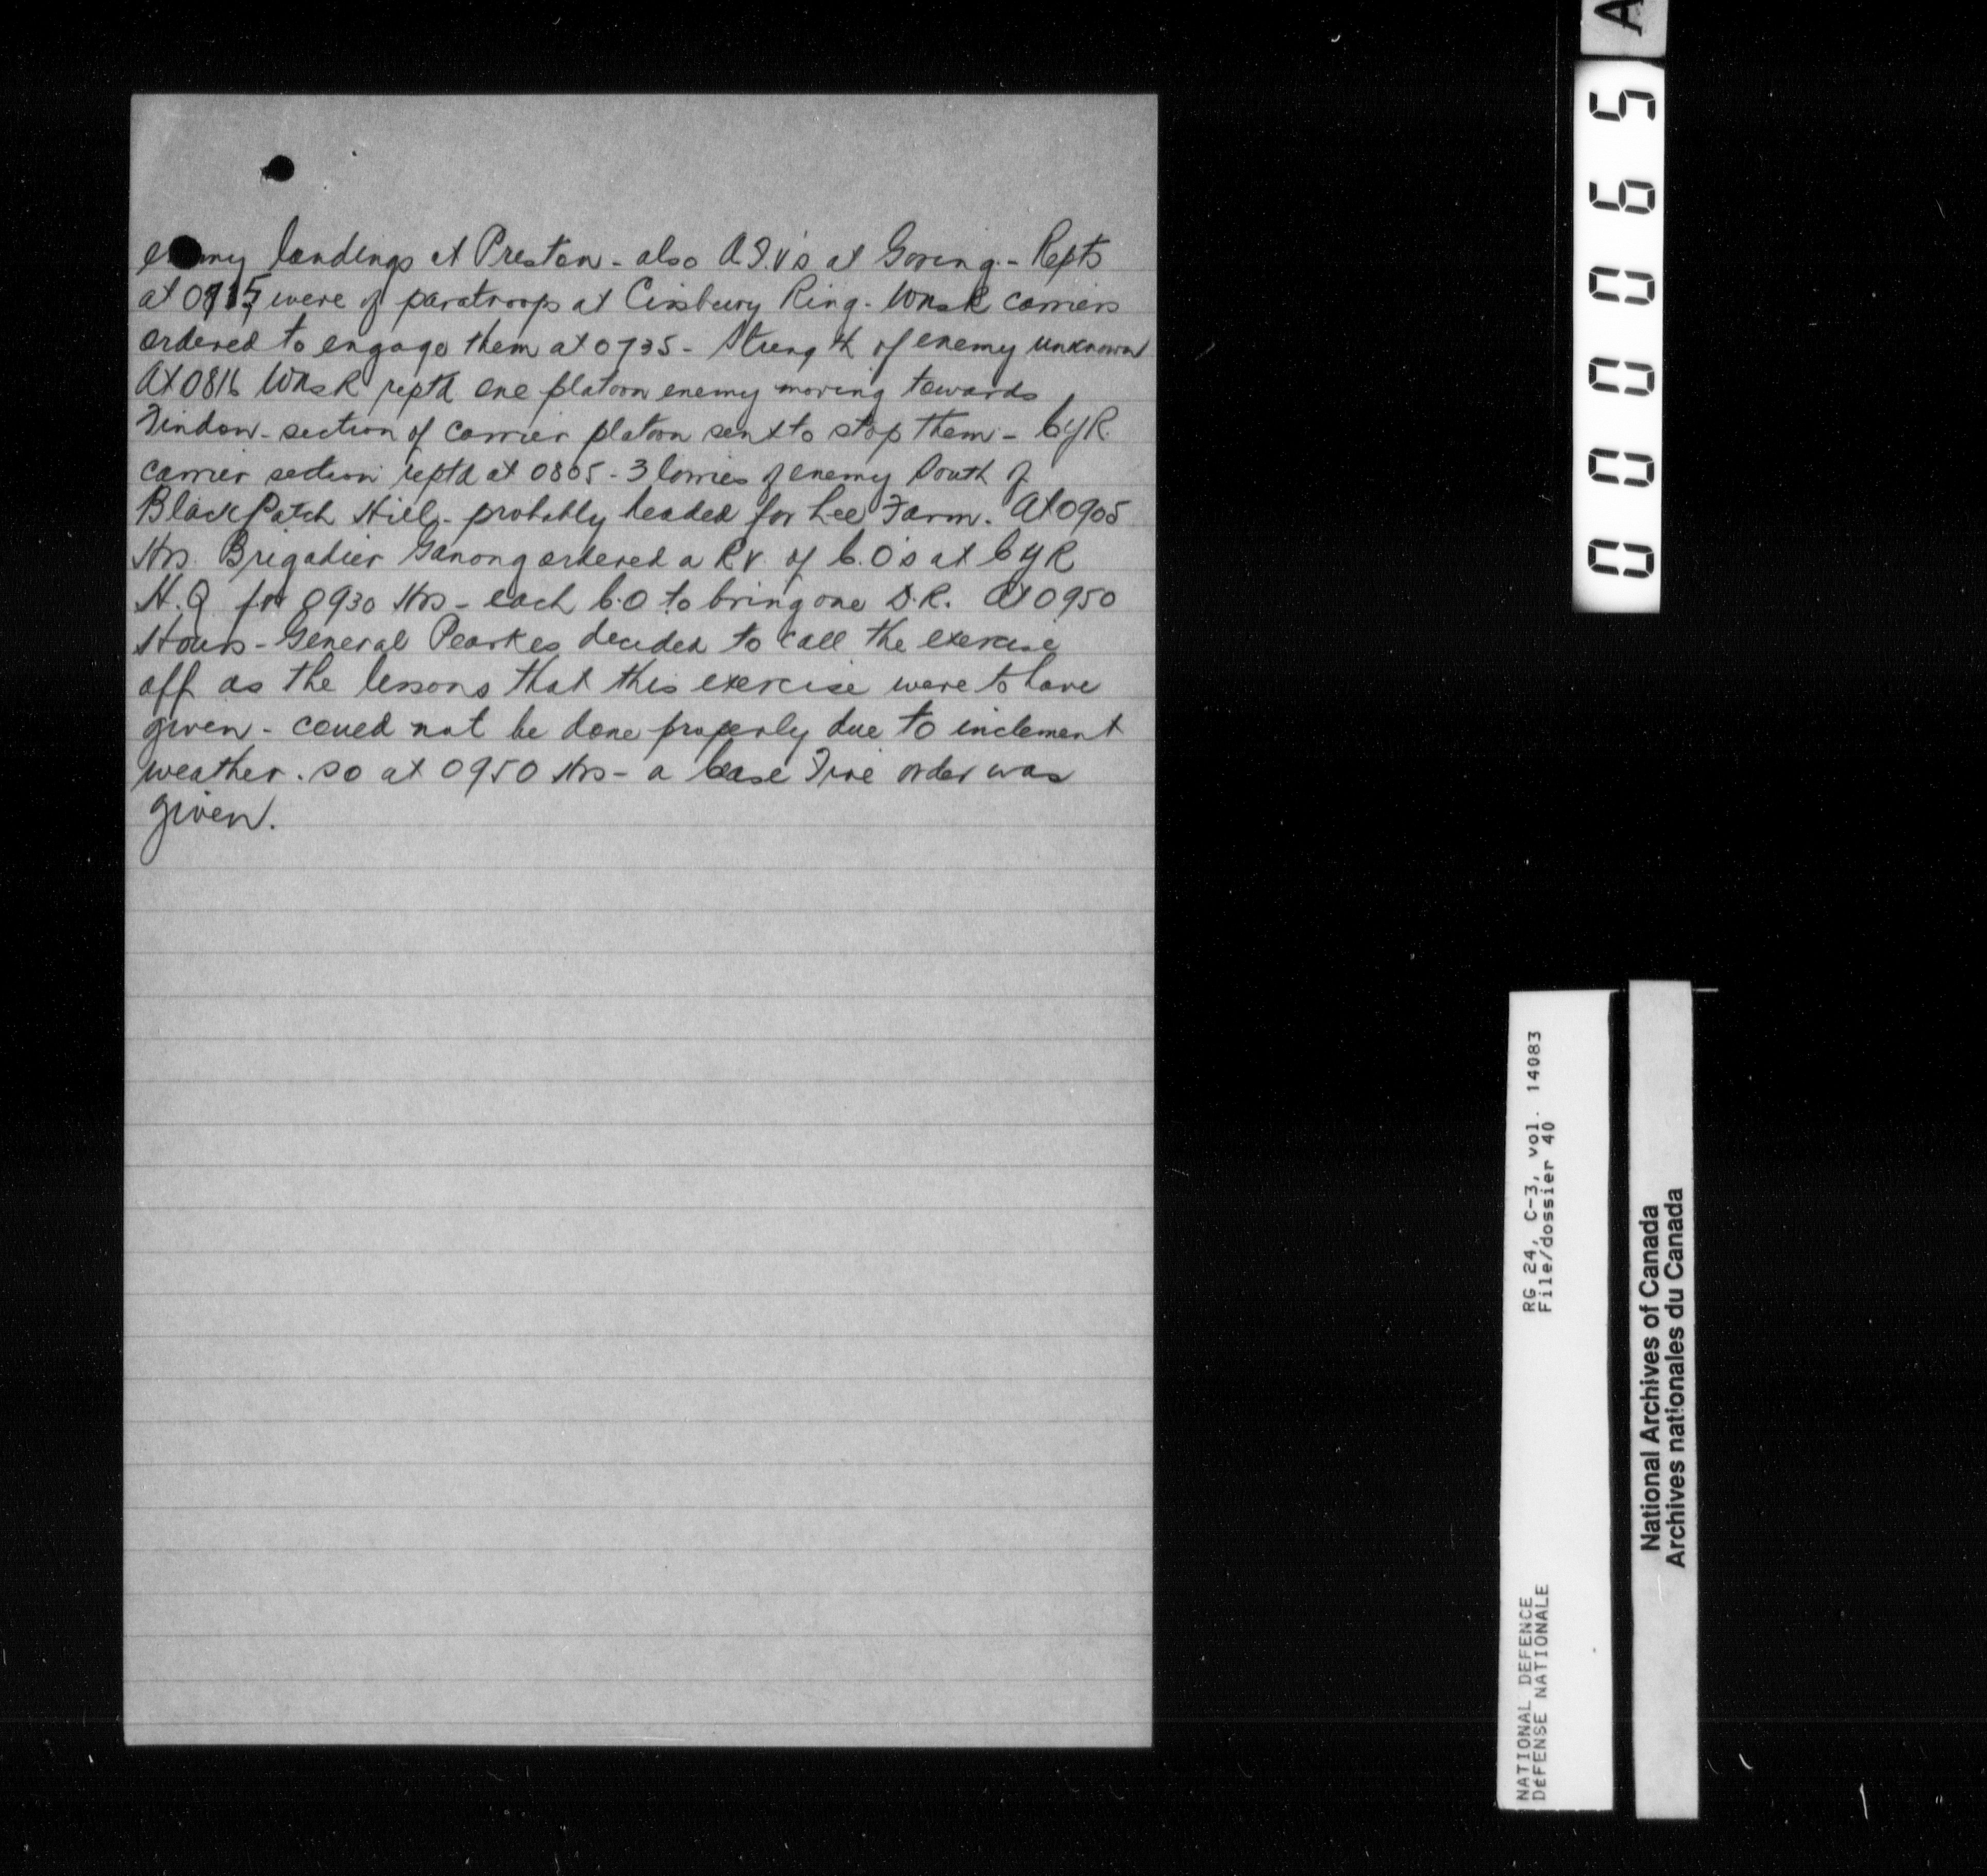 enemy landings at Preston - also A.F.V's at Goring - Repts
at 0715 were of paratroops at Cissbury Ring - WNSR carriers
ordered to engage them at 0735 - Strength of enemy unknown
At 0816 WNSR reptd one platoon enemy moving towards
Findon - section of carrier platoon sent to stop them - CYR
carrier section reptd at 0805 - 3 lorries of enemy South of
Black Patch Hill - probably headed for Lee Farm. At 0905
Hrs. Brigadier Ganong ordered a RV. of C.O's at CYR
H.Q for 0930 Hrs - each C.O to bring one D.R. At 0950
Hours - General Pearkes decided to call the exercise
off as the lessons that this exercise were to have
given - could not be done properly due to inclement
weather. so at 0950 Hrs - a Cease Fire order was
given.
A
000065
RG 24, C-3, vol. 14083
File/dossier 40
NATIONAL DEFENCE
DéFENSE NATIONALE
National Archives of Canada
Archives nationales du Canada